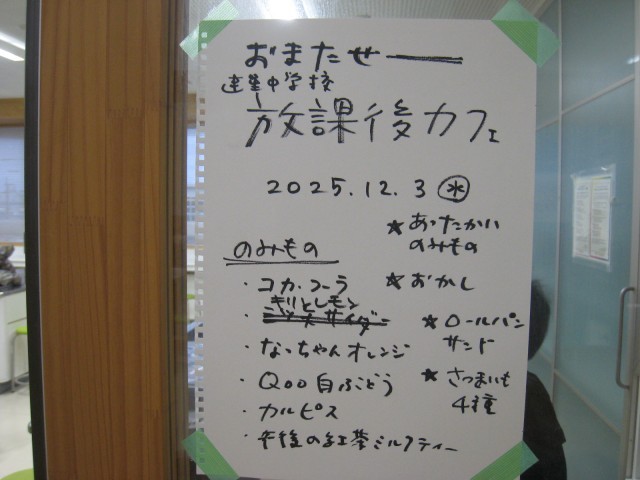 おまたせー
中学校
放課後カフェ
2025.12.3 水
★あったかい
のみもの
★おかし
★ロールパン
サンド
★さつまいも
4種
のみもの
・コカ・コーラ
・キリンレモン
・なっちゃんオレンジ
・Qoo白ぶどう
・カルピス
・午後の紅茶ミルクティー